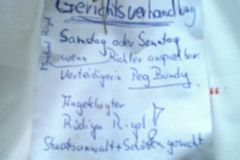 Gerichtsverhandlung
Samstag oder Sonntag
wenn Richter ansprechbar
Verteidigerin Peg Bundy
Angeklagter
Rüdiger
Staatsanwalt + Schöffen gesucht